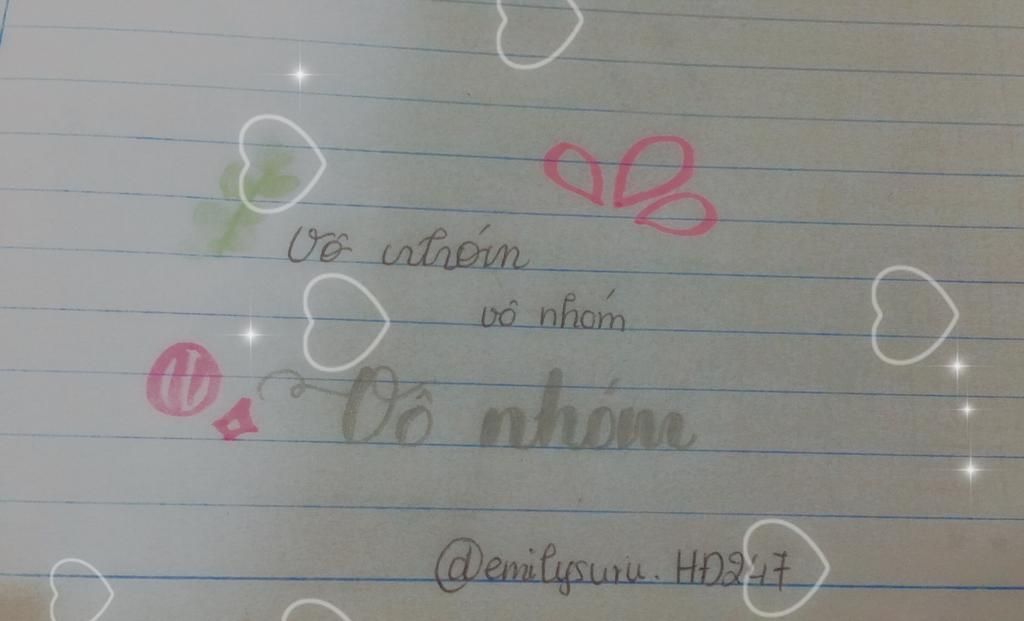 Vô nhóm
vô nhóm
Vô nhóm
@emilysuru. HĐ247